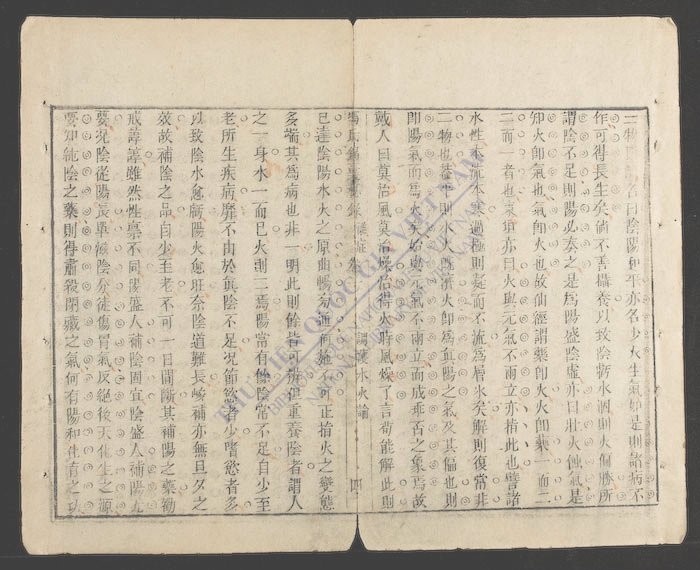 二物 名曰陰陽和平亦名少火生氣如是則諸病不
作可得長生矣倘不善攝養以致陰虧水涸則火偏勝所
謂陰不足則陽必奏之是爲陽盛陰虛亦曰壯火蝕氣是
知火卽氣也氣卽火也故仙經謂藥卽火火卽藥一而二
二而一者也東垣亦曰火與元氣不兩立亦指此也譬諸
水性本流本寒過極則凝而不流爲層氷矣解則復常非
二物也蓋平則水火旣濟火卽爲眞陽之氣及其偏也則
卽陽氣而爲火矣始與元氣不兩立而成乖否之象焉故
戴人曰莫治風莫治燥治得火時風燥了言苟能解此則
馮氏錦囊秘錄 雜症卷 調護水火論 四
已達陰陽水火之原曲暢旁通何施不可正指火之變態
多端其爲病也非一明此則餘皆可辨但重養陰者謂人
之一身水一而已火則二焉陽常有餘陰常不足自少至
老所生疾病靡不由於眞陰不足况節慾者少嗜慾者多
以致陰水愈虧陽火愈旺奈陰道難長峻補亦無旦夕之
效故補陰之品自少至老不可一日間斷其補陽之藥勸
戒諄諄雖然性禀不同陽盛人補陰固宜陰盛人補陽尤
要况陰從陽長單滋陰分徒傷胃氣反絕後天化生之源
要知純陰之藥則得肅殺閉藏之氣何有陽和化育之功
THƯ VIỆN QUỐC GIA VIỆT NAM